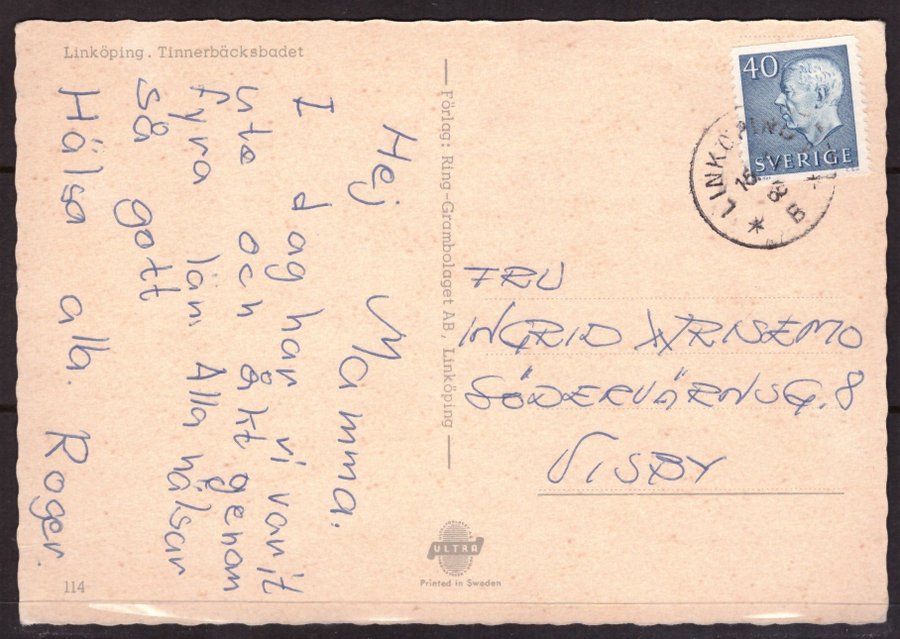 Linköping. Tinnerbäcksbadet
Hej Mamma.
I dag har vi varit
ute och åkt genom
fyra län. Alla hälsar
så gott
Hälsa alla. Roger.
114
Förlag: Ring-Grambolaget AB, Linköping
40
SVERIGE
LINKÖPING
18 8
B
FRU
INGRID ARISEMO
SÖDERVÄRNSG. 8
VISBY
ULTRA
Printed in Sweden